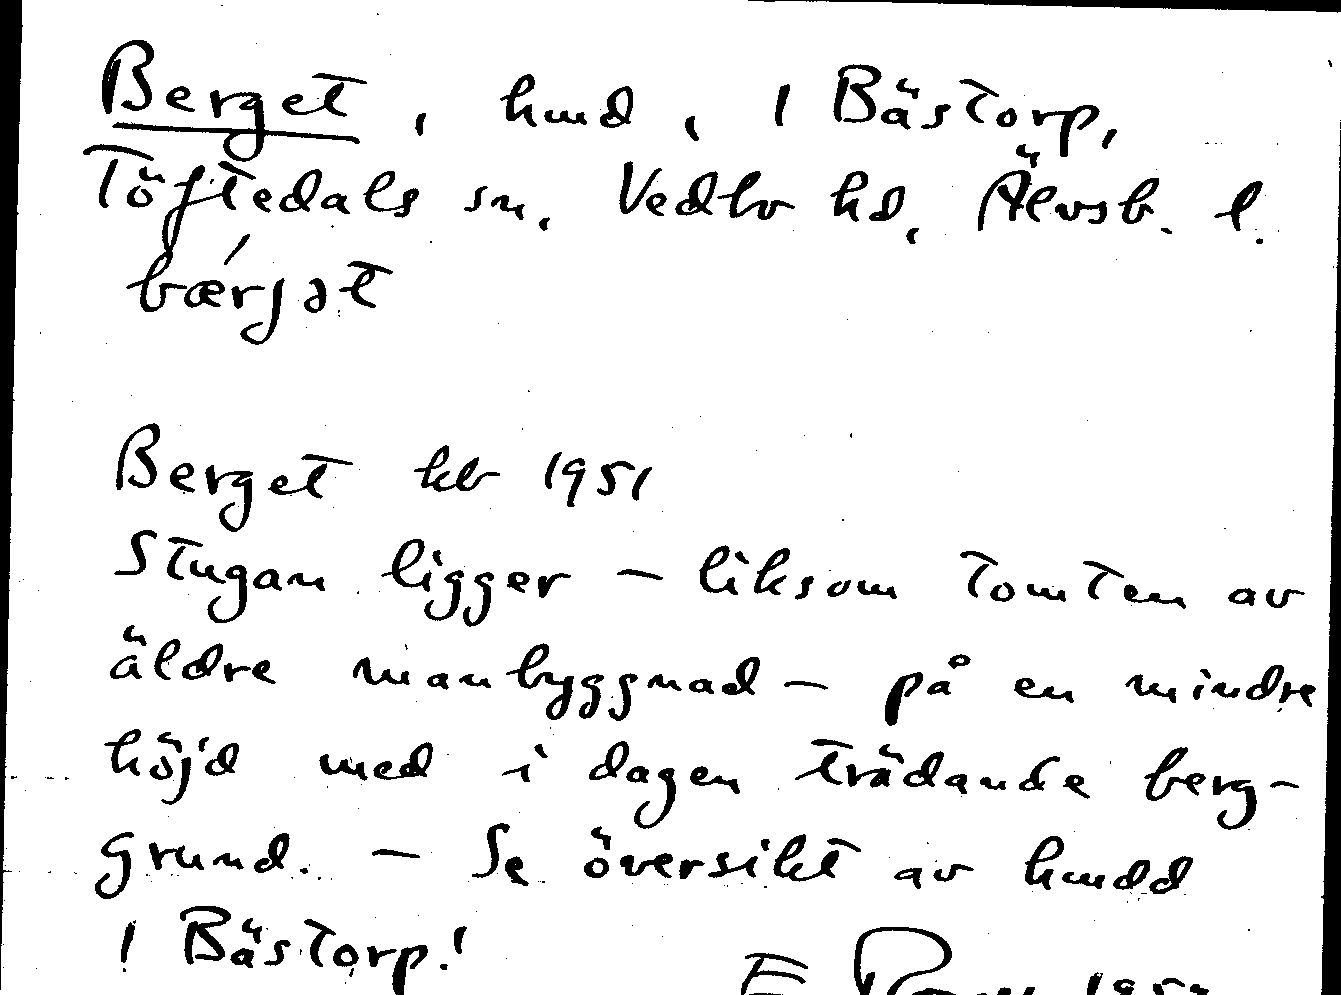 Berget, hmd, 1 Bästorp,
Töftedals sn. Vedbo hd, Älvsb. l.
bærjət
Berget kb 1951
Stugan ligger – liksom tomten av
äldre manbyggnad – på en mindre
höjd med i dagen trädande berg-
grund. – Se översikt av hmdd
1 Bästorp!
E